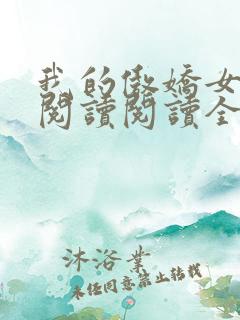 我的傲嬌女
閱讀閱讀全
沐浴業
未经同意禁止转载